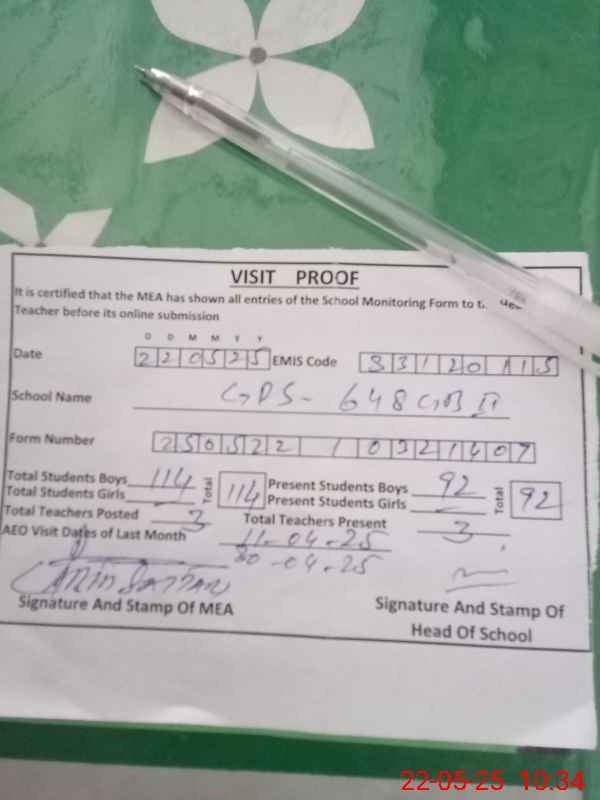 VISIT PROOF
It is certified that the MEA has shown all entries of the School Monitoring Form to
Teacher before its online submission
D D M M Y Y
Date 220525 EMIS Code 33120115
School Name GPS- 648 GB II
Form Number 250522 1 0321407
Total Students Boys 114 Total 114 Present Students Boys 92 Total 92
Total Students Girls - Present Students Girls -
Total Teachers Posted 3 Total Teachers Present 3
AEO Visit Dates of Last Month 11-04-25
30-04-25
Signature And Stamp Of MEA Signature And Stamp Of
Head Of School
22-05-25 10:34